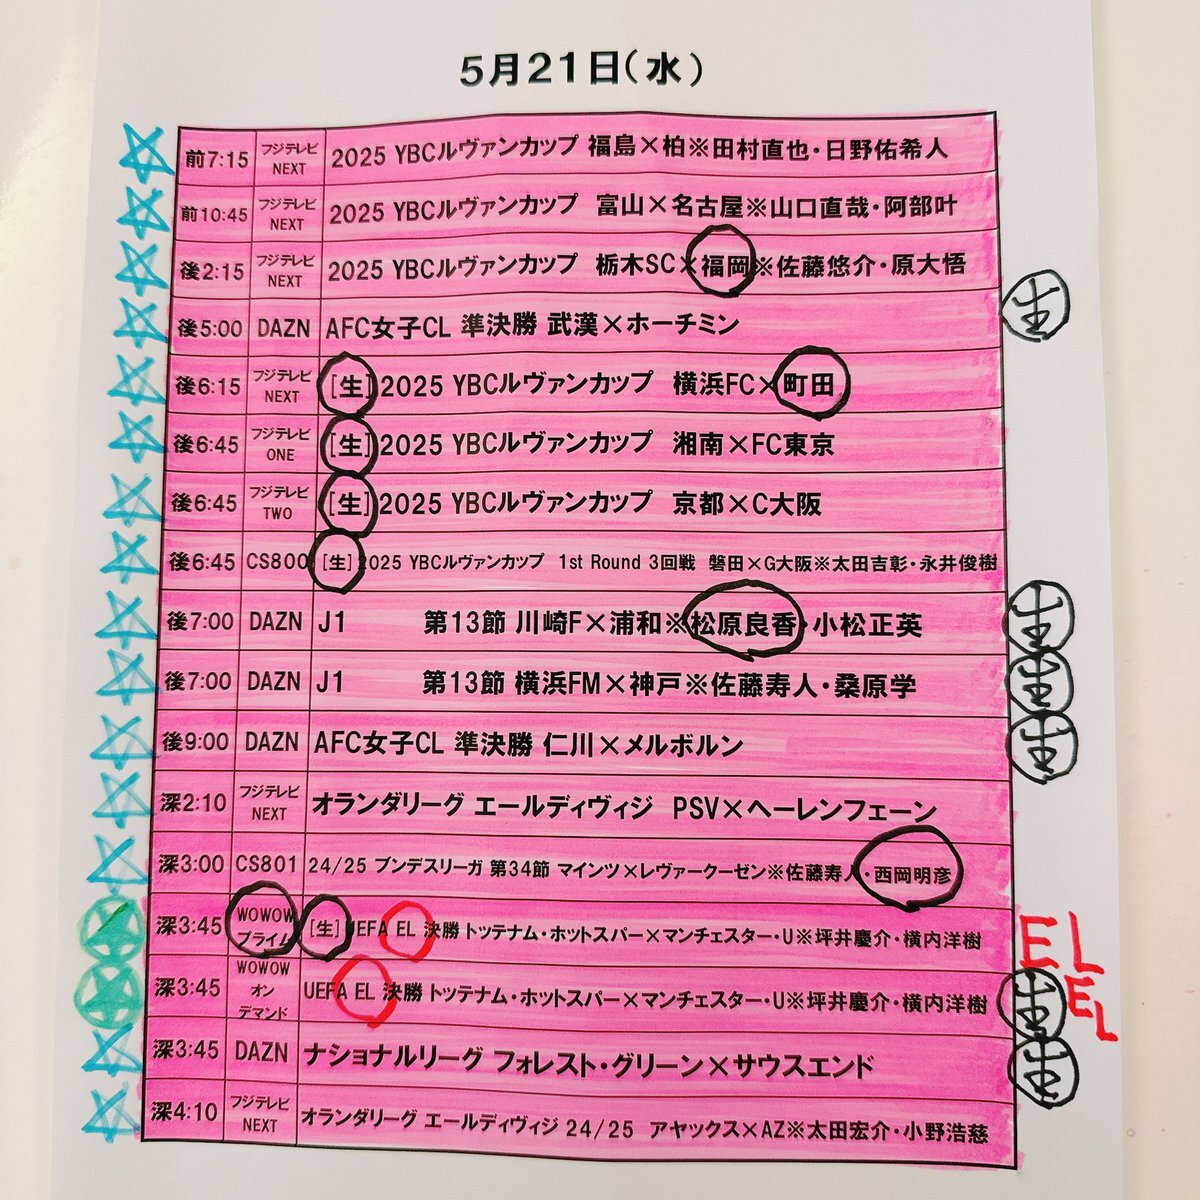 5月21日(水)
前7:15 フジテレビNEXT 2025 YBCルヴァンカップ 福島×柏※田村直也・日野佑希人
前10:45 フジテレビNEXT 2025 YBCルヴァンカップ 富山×名古屋※山口直哉・阿部叶
後2:15 フジテレビNEXT 2025 YBCルヴァンカップ 栃木SC×福岡※佐藤悠介・原大悟
後5:00 DAZN AFC女子CL 準決勝 武漢×ホーチミン 生
後6:15 フジテレビNEXT [生]2025 YBCルヴァンカップ 横浜FC×町田
後6:45 フジテレビONE [生]2025 YBCルヴァンカップ 湘南×FC東京
後6:45 フジテレビTWO [生]2025 YBCルヴァンカップ 京都×C大阪
後6:45 CS800 [生]2025 YBCルヴァンカップ 1st Round 3回戦 磐田×G大阪※太田吉彰・永井俊樹
後7:00 DAZN J1 第13節 川崎F×浦和※松原良香・小松正英 生
後7:00 DAZN J1 第13節 横浜FM×神戸※佐藤寿人・桑原学 生
後9:00 DAZN AFC女子CL 準決勝 仁川×メルボルン 生
深2:10 フジテレビNEXT オランダリーグ エールディヴィジ PSV×ヘーレンフェーン
深3:00 CS801 24/25 ブンデスリーガ 第34節 マインツ×レヴァークーゼン※佐藤寿人・西岡明彦
深3:45 WOWOWプライム [生]UEFA EL 決勝 トッテナム・ホットスパー×マンチェスター・U※坪井慶介・横内洋樹 EL
深3:45 WOWOWオンデマンド UEFA EL 決勝 トッテナム・ホットスパー×マンチェスター・U※坪井慶介・横内洋樹 生 EL
深3:45 DAZN ナショナルリーグ フォレスト・グリーン×サウスエンド 生
深4:10 フジテレビNEXT オランダリーグ エールディヴィジ 24/25 アヤックス×AZ※太田宏介・小野浩慈